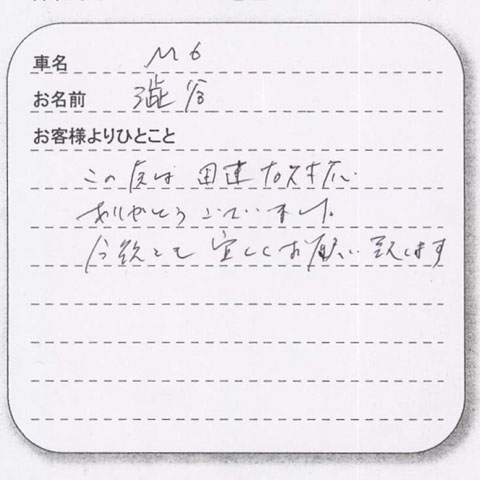 車名 M6
お名前 澁谷
お客様よりひとこと
この度は
ありがとうございました
今後とも宜しくお願い致します